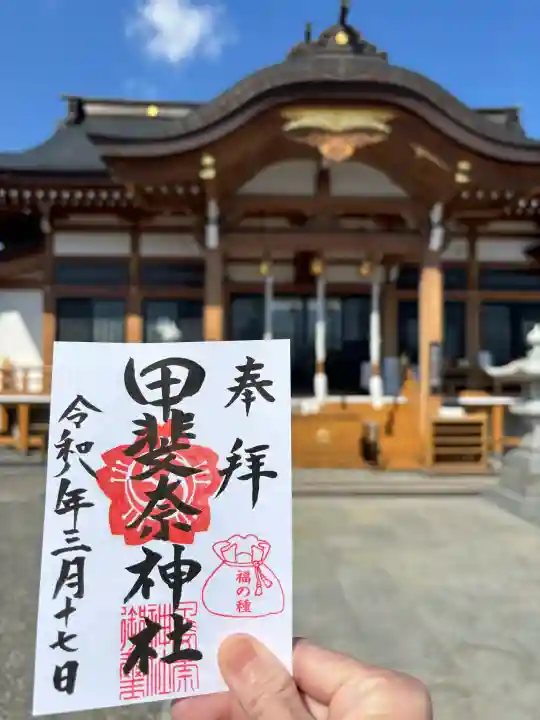 奉拝
甲斐奈神社
令和八年三月十七日
福の種